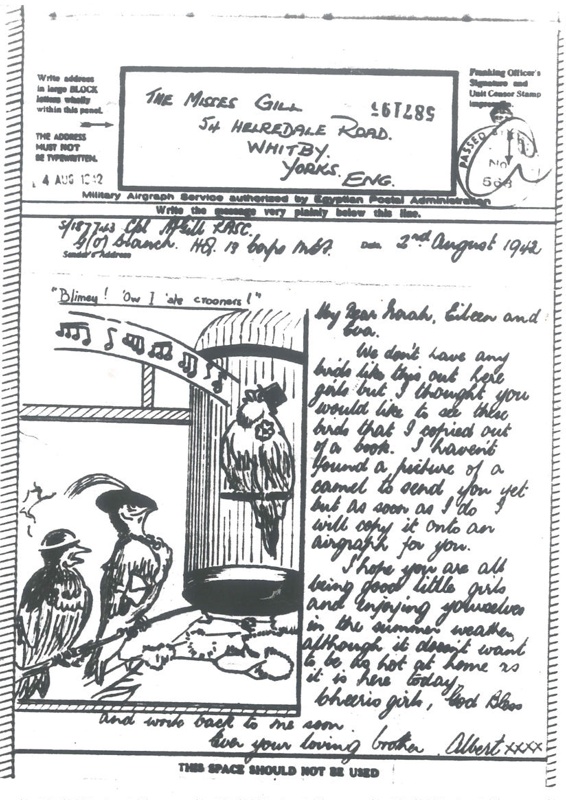 Write address
in large BLOCK
letters wholly
within this panel.
THE ADDRESS
MUST NOT
BE TYPEWRITTEN.
4 AUG 1942
THE MISSES GILL
54 HELREDALE ROAD.
WHITBY.
YORKS.
ENG.
587195
Franking Officer's
Signature and
Unit Censor Stamp
PASSED
No
568
Military Airgraph Service authorised by Egyptian Postal Administration
Write the message very plainly below this line.
Cpl A Gill RASC.
Branch. HQ. 13 Corps MEF.
Sender's Address
Date 2nd August 1942
"Blimey! 'Ow I 'ate crooners!"
My Dear Norah, Eileen and
Eva.
We don't have any
birds like this out here
girls but I thought you
would like to see these
birds that I copied out
of a book. I haven't
found a picture of a
camel to send you yet
but as soon as I do I
will copy it onto an
airgraph for you.
I hope you are all
being good little girls
and enjoying yourselves
in the summer weather,
although it doesn't want
to be as hot at home as
it is here today.
Cheerio girls, God Bless
and write back to me soon.
Ever your loving brother, Albert xxxx
THIS SPACE SHOULD NOT BE USED